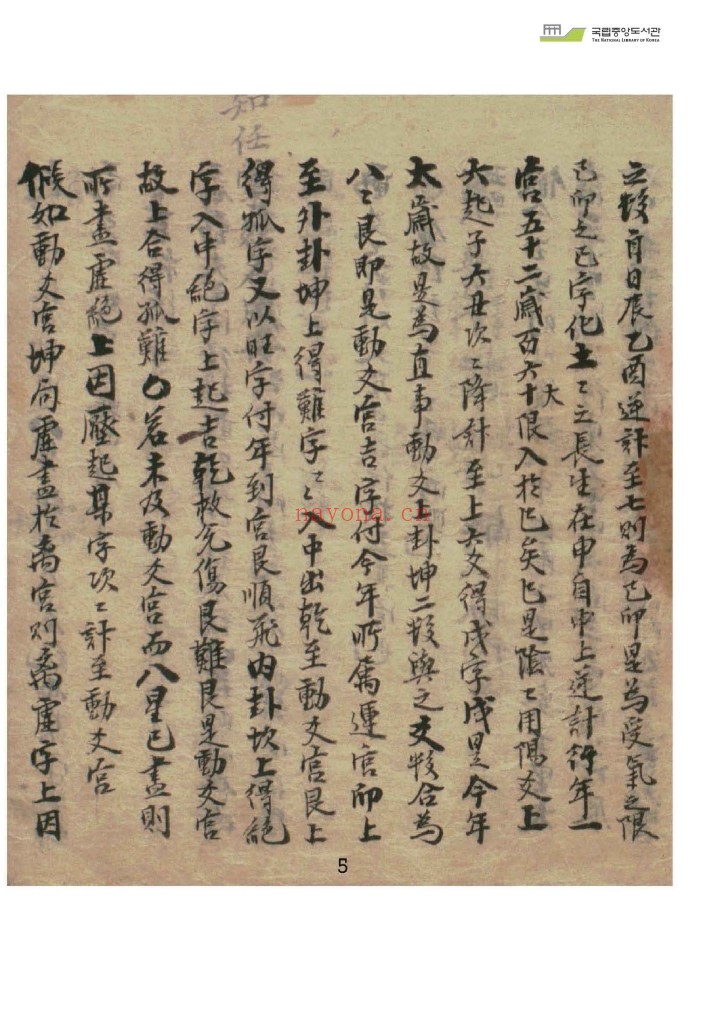 국립중앙도서관
THE NATIONAL LIBRARY OF KOREA
知任
之数自日辰乙酉逆計至七則為己卯是為受氣之限
己卯之己字化土〻之長生在申自申上逆計行年一
宮五十二歲百六十大限入於巳矣巳是陰〻用陽爻上
六起子六丑次〻降計至上六爻得戌字戌是今年
太歲故是為直事動爻上卦坤二数與之爻数合為
八〻艮即是動爻宮吉字付今年所寓運宮卽上
至外卦坤上得難字〻入中出乾至動爻宮艮上
得孤字又以旺字付年到宮艮順飛內卦坎上得絕
字入中絕字上起吉乾救兌傷艮難艮是動爻宮
故上合得孤難〇若未及動爻宮而八星已盡則
所盡虛絕上因壓起某字次〻計至動爻宮
假如動爻宮坤局虛盡於离宮則离虛字上因
nayona.cn
5